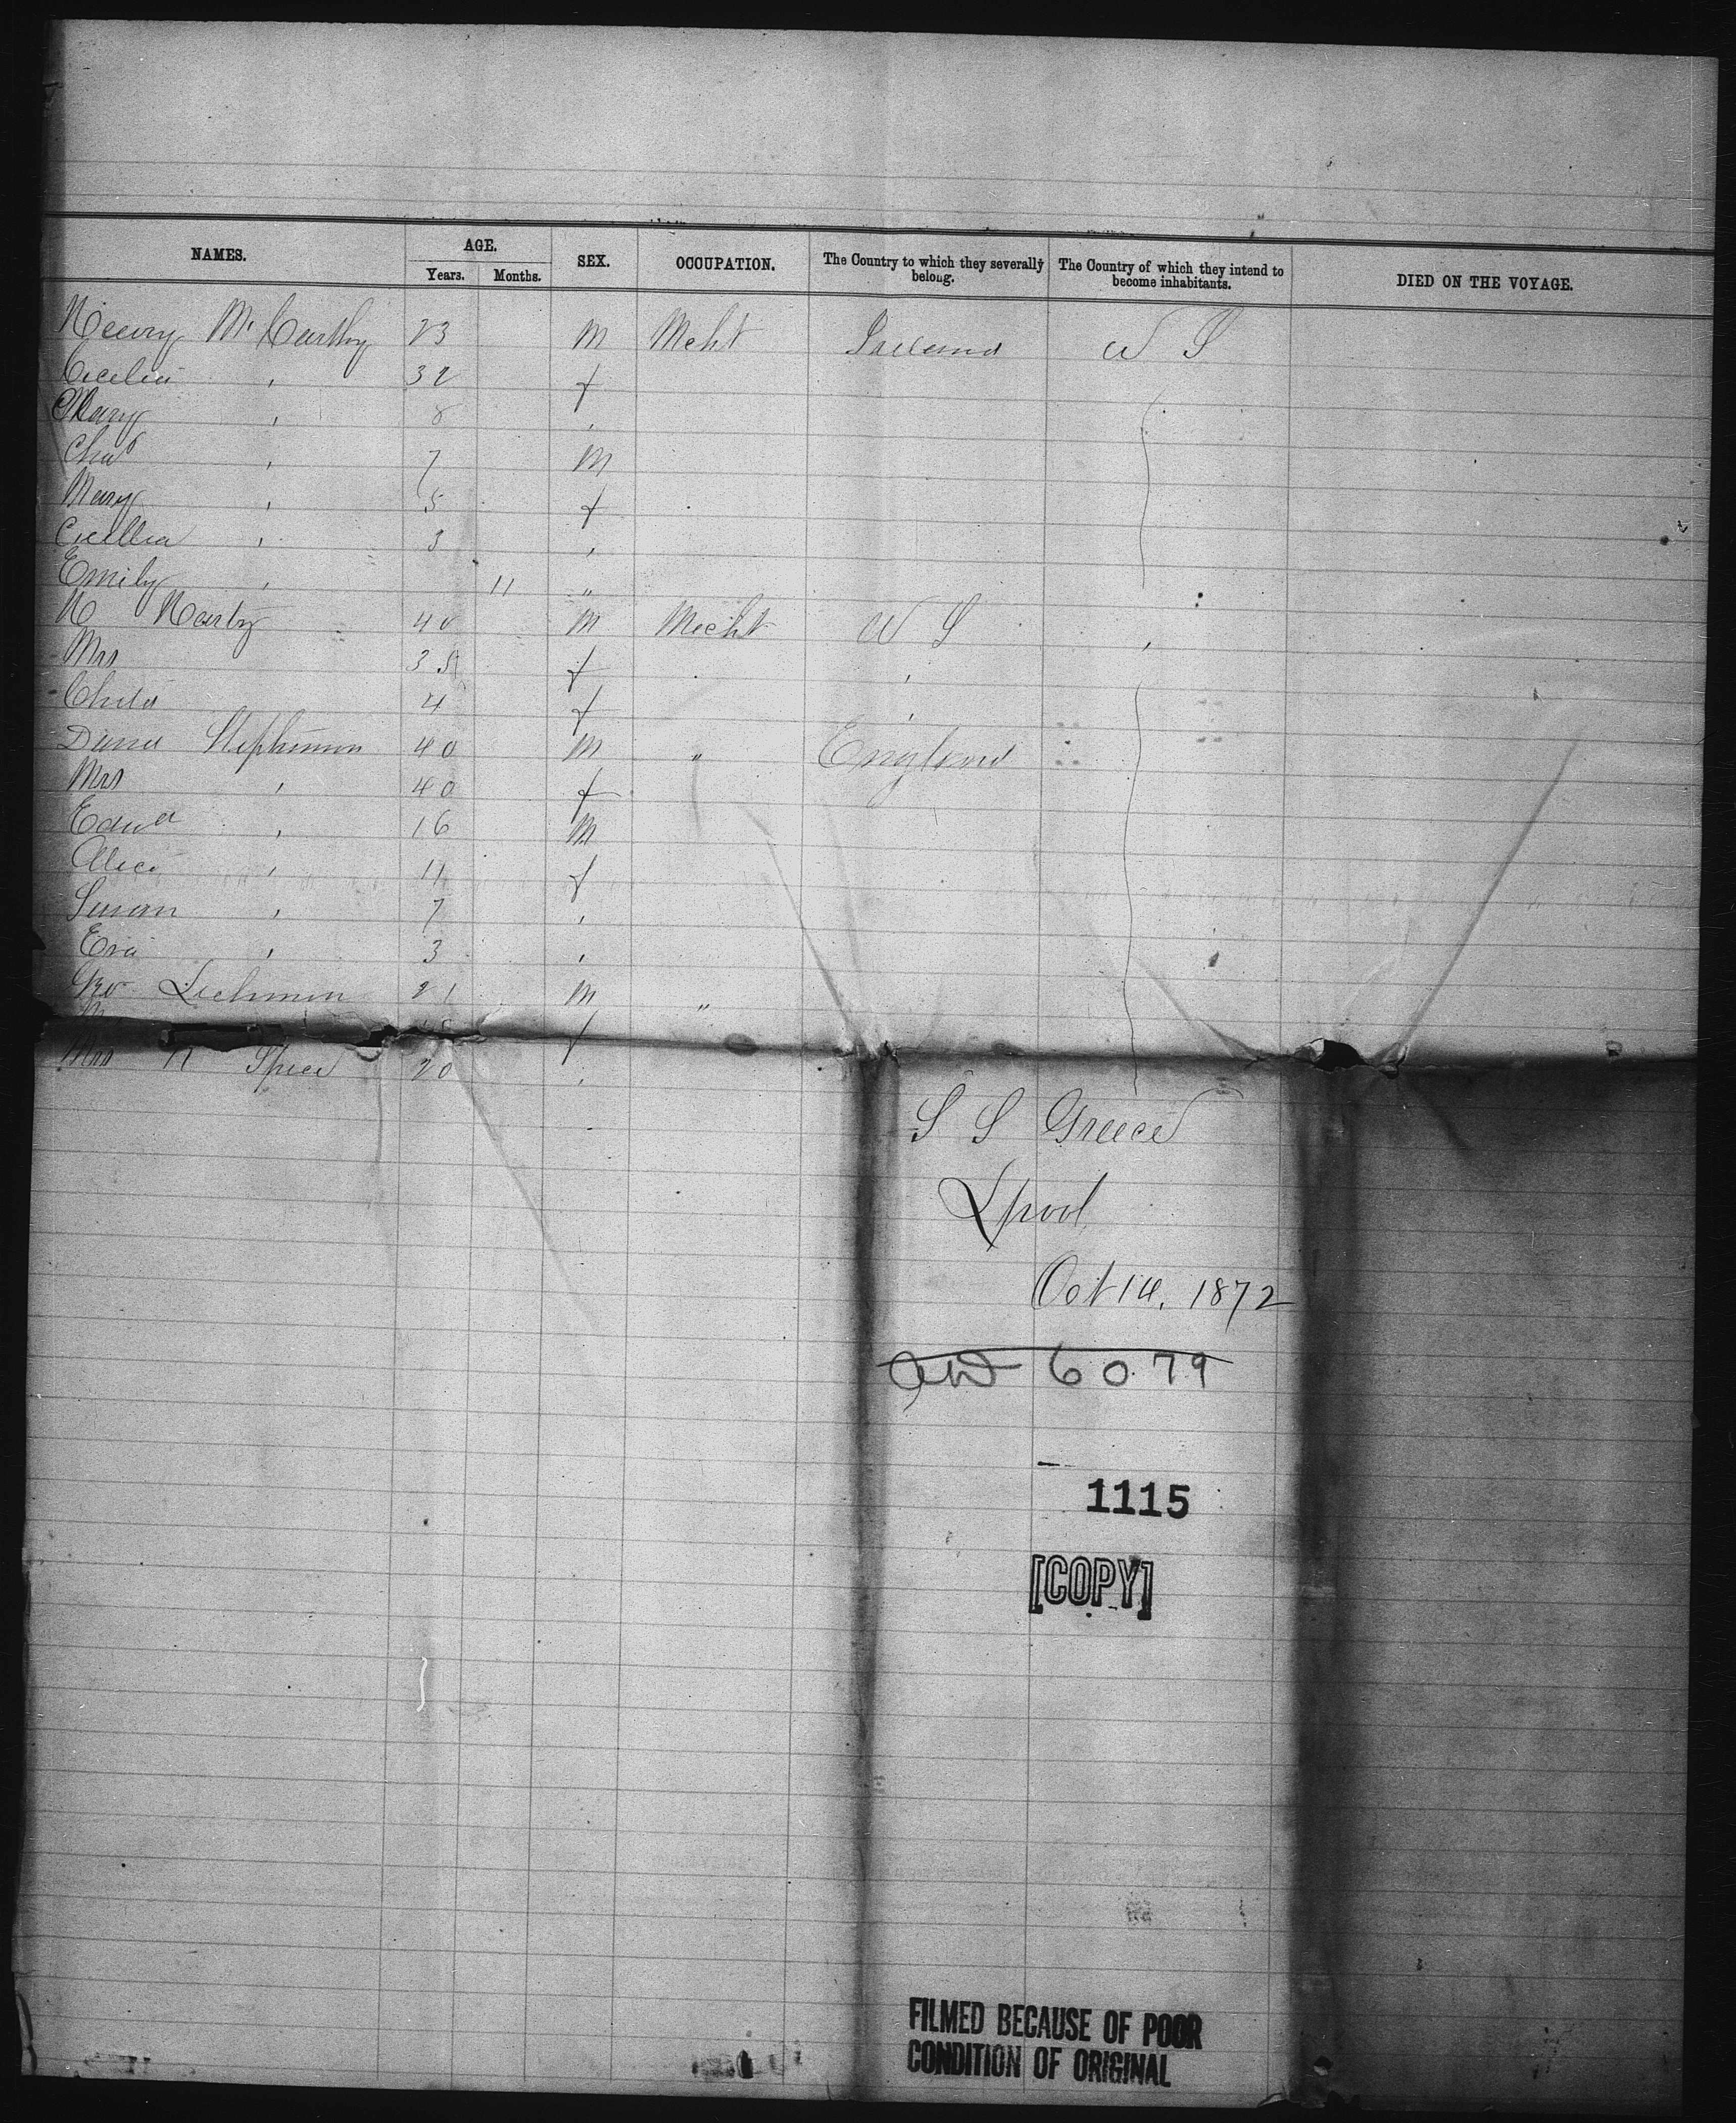 NAMES. AGE. SEX. OCCUPATION. The Country to which they severally belong. The Country of which they intend to become inhabitants. DIED ON THE VOYAGE.
Years. Months.
Henry McCarthy 23 M Mcht Ireland U S
Cecelia " 32 f
Mary " 8 "
Chas " 7 M
Mary " 5 f
Cecellia " 3 "
Emily " 11 "
H 40 M Mecht U S "
Mrs 35 f "
Child 4 f "
David Stephenson 40 M " England
Mrs " 40 f
Edwd " 16 M
Alice " 11 f
Susan " 7 "
Eva " 3 "
Geo 21 M "
f
Mrs H Spice 20 "
S S Greece
Lpool
Oct 14, 1872
6079
1115
[COPY]
FILMED BECAUSE OF POOR
CONDITION OF ORIGINAL